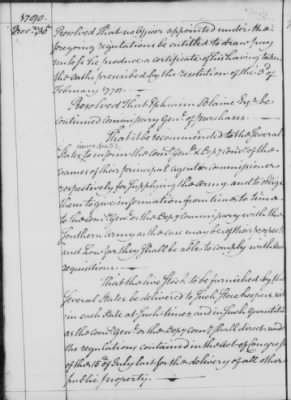 1790.
Nov.r 30
Resolved That no Officer appointed under the
foregoing regulations be entitled to draw pay
unless he produce a certificate of his having taken
the oaths prescribed by the resolution of the 3.d of
February 1778.
Resolved That Ephraim Blaine Esq.r be
continued commissary Gen.l of purchases.
That it be recommended to the several
States to inform the com.y Gen.l & Dep.y com.y of the
names of their principal agents or commissioners
respectively for supplying the army, and to oblige
them to give information from time to time
to the com.y Gen.l or the Dep.y Commissary with the
Southern army as the case may be of their prospects
and how far they shall be able to comply with the
requisitions.
That the live stock to be furnished by the
several States be delivered to such store keepers with
in each State at such times, and in such Quantities
as the com.y Gen.l or the Dep.y com.y shall direct under
the regulations contained in the act of Congress
of the 15.th of July last for the delivery of all other
public property.